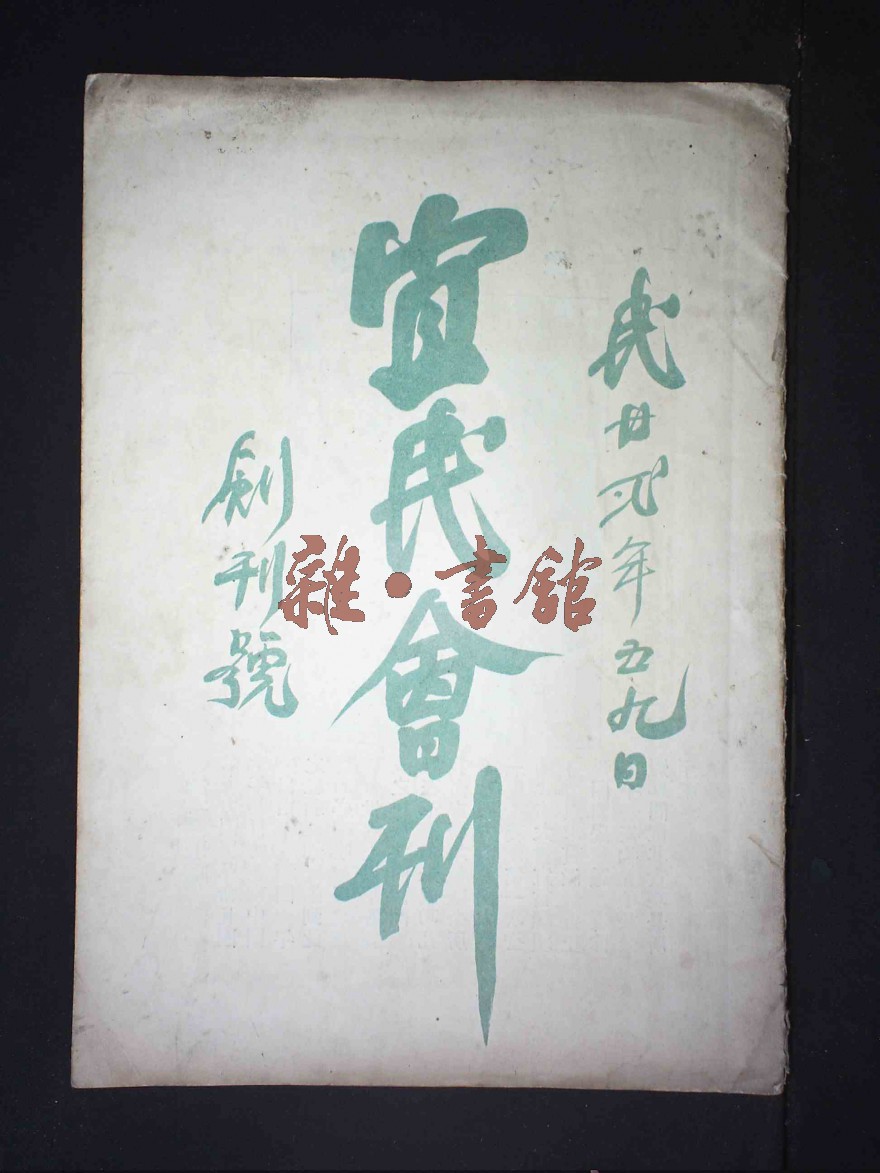 民廿弍年五九日
宜民會刊
創刊號
雜•書館